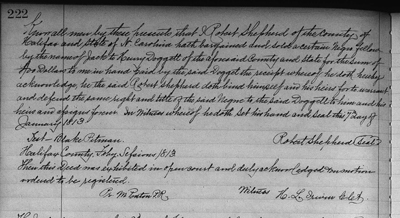 222
Know all men by these presents that I Robert Shepherd of the County of
Halifax and State of N Carolina hath bargained and sold a certain Negro fellow
by the name of Jack to Henry Doggett of the aforesaid County and State for the sum of
Dollars to me in hand paid by the said Doggett the receipt whereof he doth hereby
acknowledge he the said Robert Shepherd doth bind himself and his heirs for to warrant
and defend the same right and title of the said Negro to the said Doggett to him and his
heirs and assigns forever In Witness whereof he doth set his hand and seal this 7 day of
January 1813
Test Blake Pitman Robert Shepherd (Seal)
Halifax County Feby Sessions 1813
Then this Deed was exhibited in open court and duly acknowledged on motion
ordered to be registered
Pr M Eaton PR Witness H L Irwin Clk